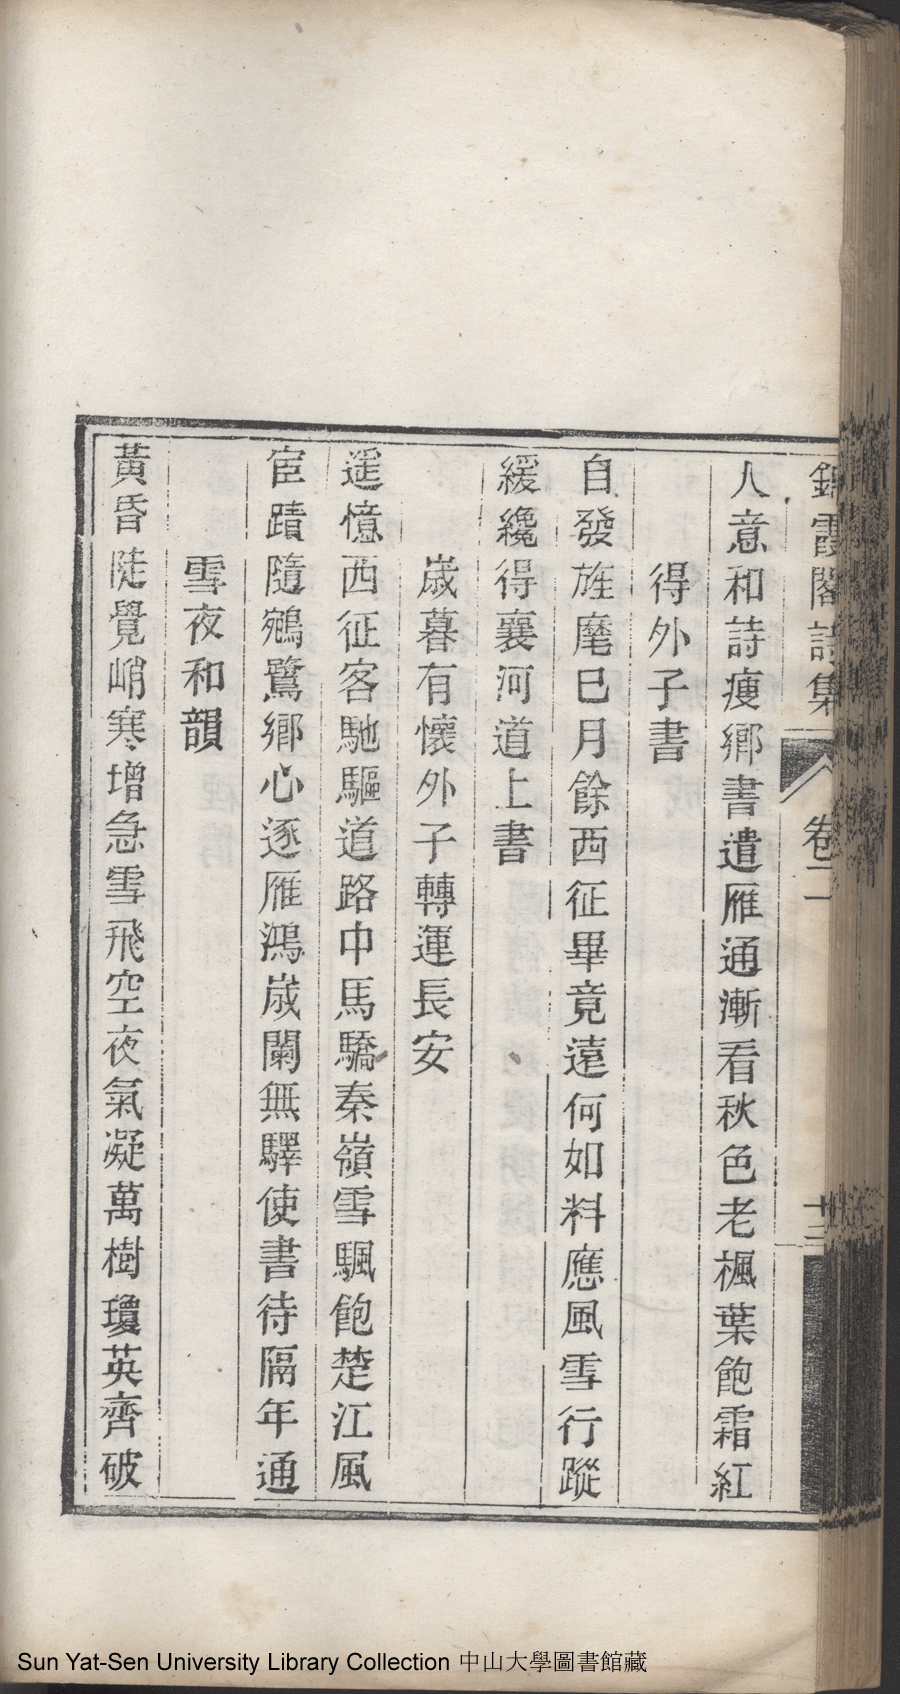 錦霞閣詩集 卷二 十三
人意和詩痩鄉書遣雁通漸看秋色老楓葉飽霜紅
得外子書
自發旌麾巳月餘西征畢竟遠何如料應風雪行蹤
緩纔得襄河道上書
歲暮有懷外子轉運長安
遥憶西征客馳驅道路中馬驕秦嶺雪颿飽楚江風
宦蹟隨鵷鷺鄉心逐雁鴻歲闌無驛使書待隔年通
雪夜和韻
黃昏陡覺峭寒增急雪飛空夜氣凝萬樹瓊英齊破
Sun Yat-Sen University Library Collection 中山大學圖書館藏